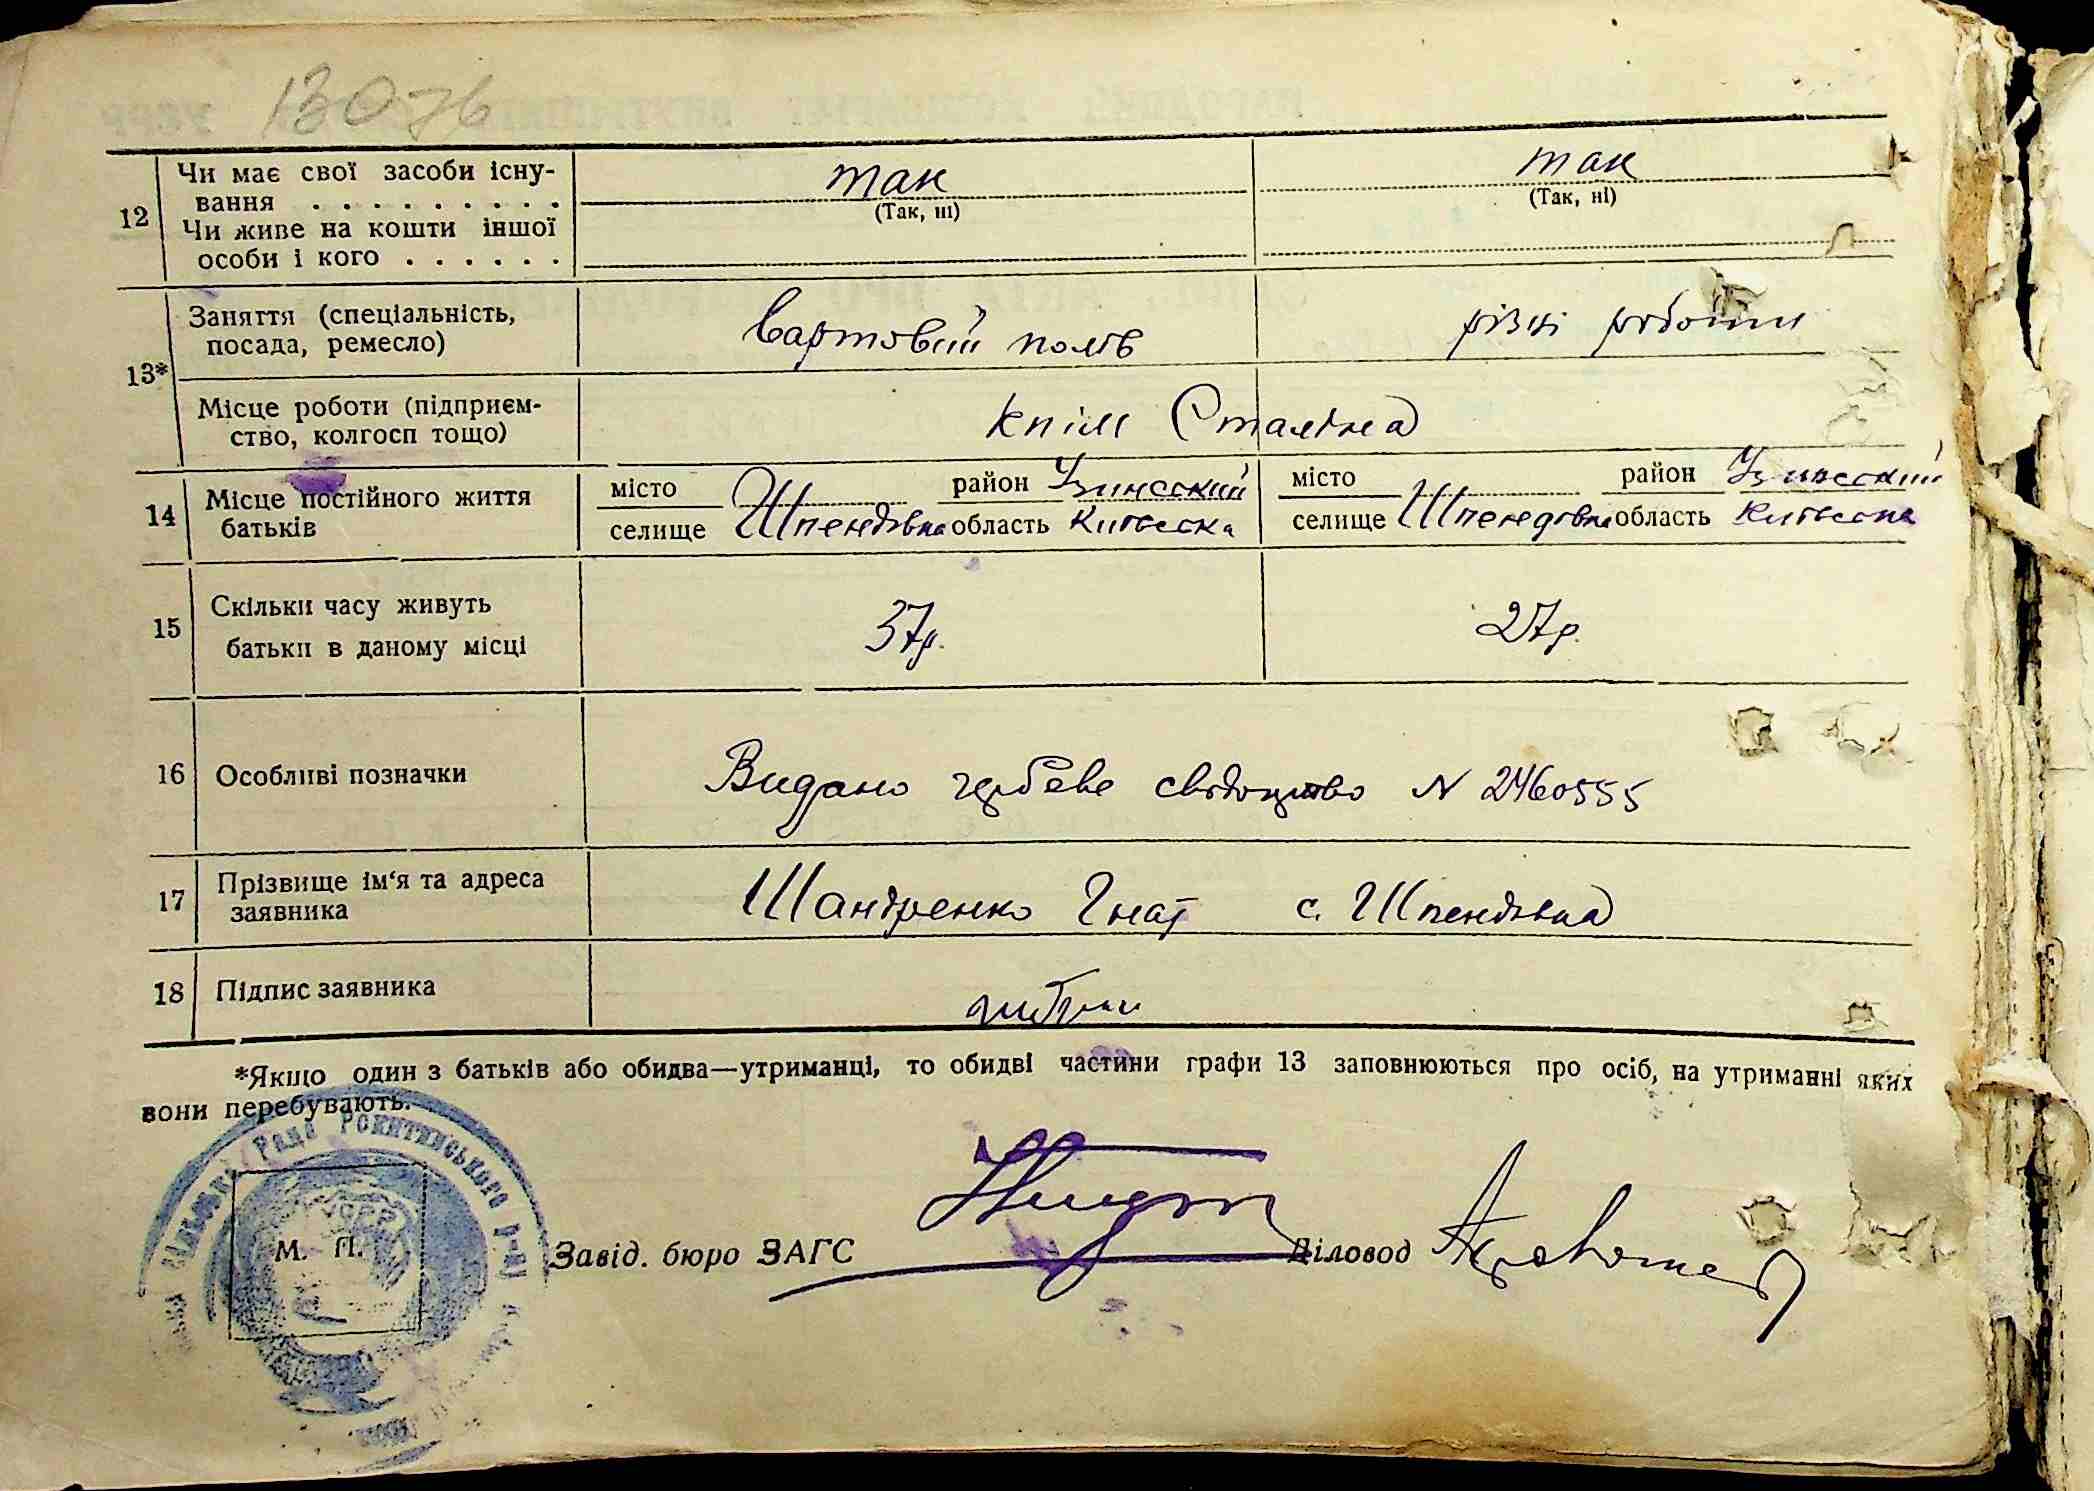 13076
12 Чи має свої засоби існу-
вання . . . . . . . . . так так
(Так, ні) (Так, ні)
Чи живе на кошти іншої
особи і кого . . . . . .
13* Заняття (спеціальність,
посада, ремесло) Вартовий полів різні роботи
Місце роботи (підприєм-
ство, колгосп тощо) Сталіна
14 Місце постійного життя
батьків
місто район Узинсский місто район Узинсский
селище Шпендівка область Київсска селище Шпендовка область Київсска
15 Скільки часу живуть
батьки в даному місці 37р. 27р.
16 Особливі позначки Видано гербове свідоцтво N 2460555
17 Прізвище ім'я та адреса
заявника Шандренко Гнат с. Шпендівка
18 Підпис заявника
*Якщо один з батьків або обидва—утриманці, то обидві частини графи 13 заповнюються про осіб, на утриманні яких
вони перебувають.
Рада Рокитянського р-ну
УСРР
М. П.
Завід. бюро ЗАГС Діловод